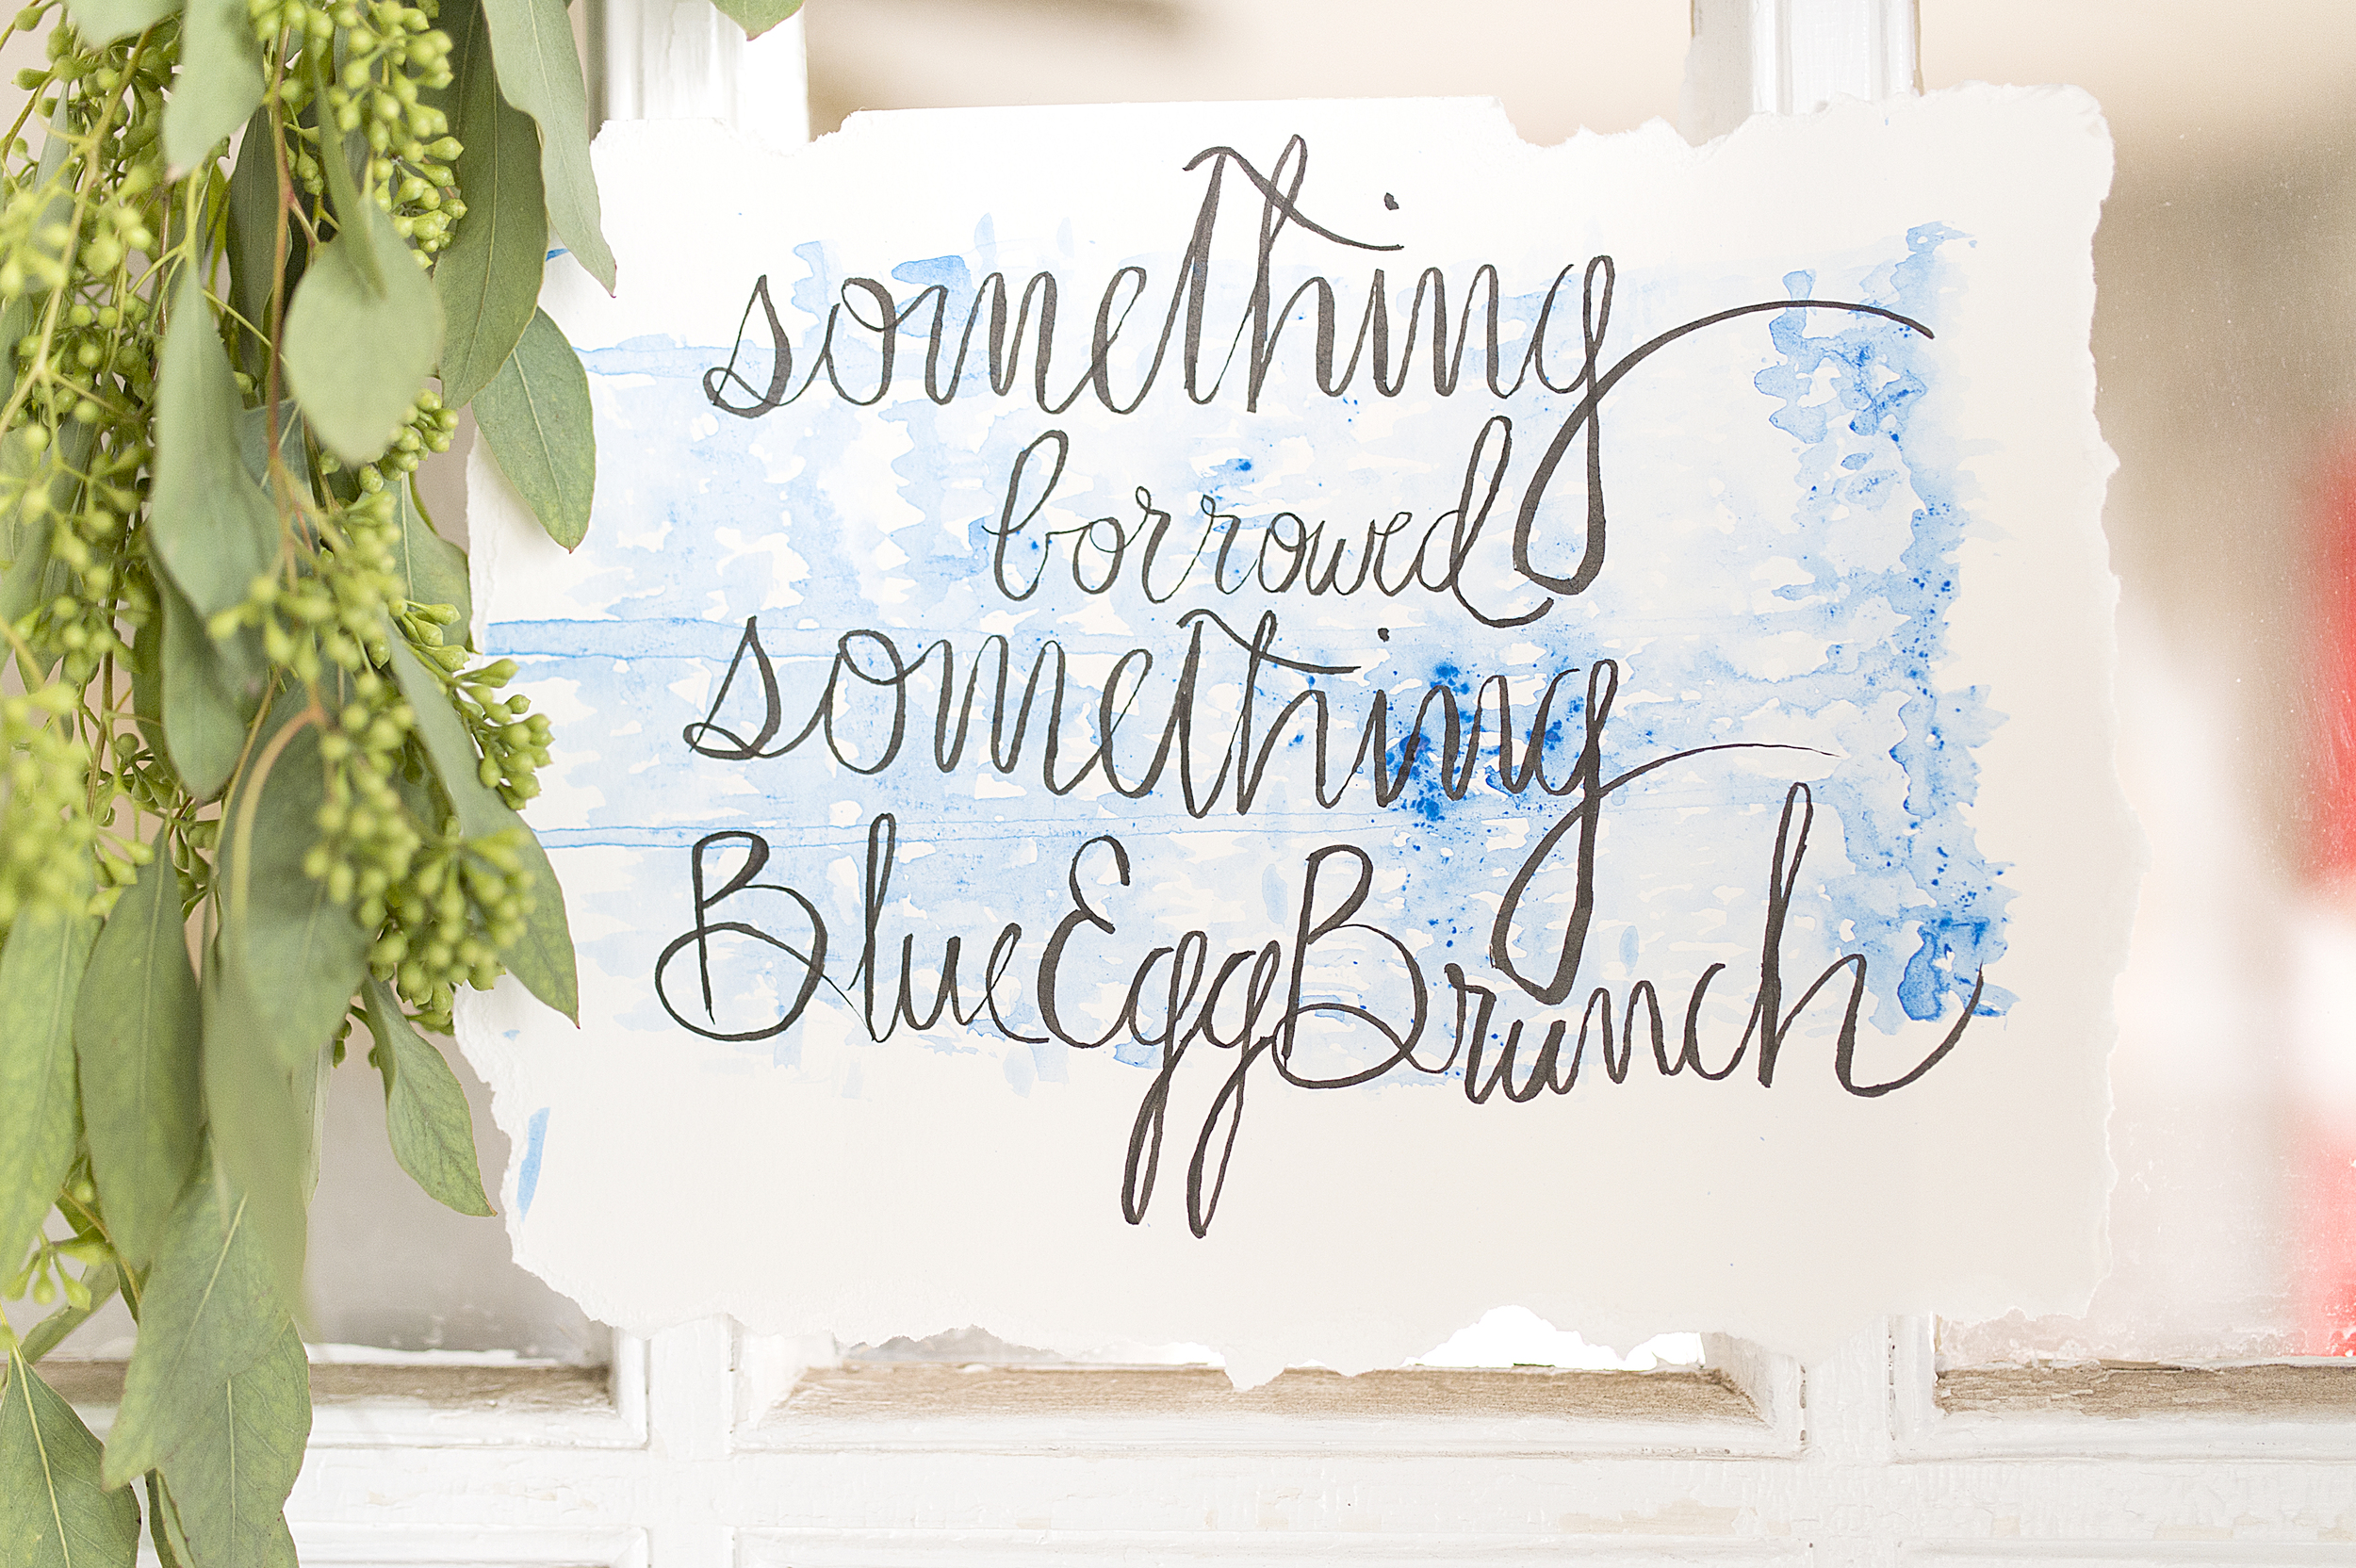 something
borrowed
something
BlueEggBrunch